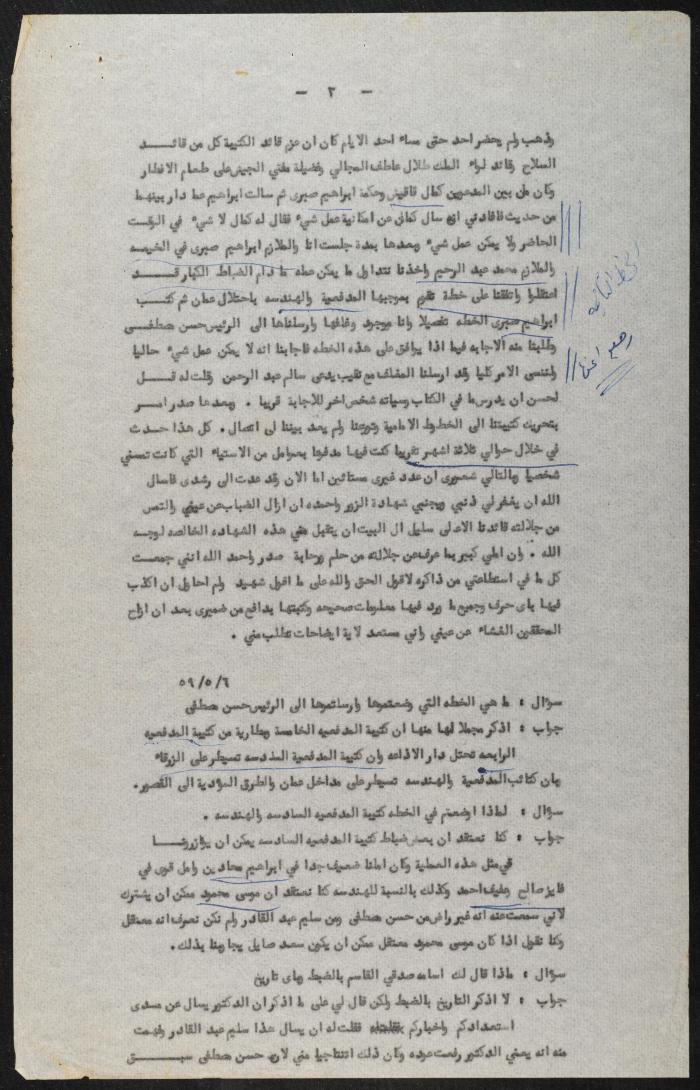 - ٢ -
وذهب ولم يحضر احد حتى مساء احد الايام كان ان عزم قائد الكتيبة كل من قائد
السلاح وقائد لواء الملك طلال عاطف المجالي وفضيلة مفتي الجيش على طعام الافطار
وكان من بين المدعوين كمال قاقيش وحكمة ابراهيم صبرى ثم سالت ابراهيم عما دار بينهما
من حديث فافادني انه سال كمال عن امكانية عمل شيء فقال له كمال لا شيء في الوقت
الحاضر ولا يمكن عمل شيء وبعدها بمدة جلست انا والملازم ابراهيم صبرى في الخيمه
والملازم محمد عبد الرحيم واخذنا نتداول ما يمكن عمله ما دام الضباط الكبار قد
اعتقلوا واتفقنا على خطة تقوم بموجبها المدفعية والهندسه باحتلال عمان ثم كتب
ابراهيم صبرى الخطه تفصيلا وانا موجود وغلفها وارسلناها الى الرئيس حسن مصطفى
وطلبنا منه الاجابه فيما اذا يوافق على هذه الخطه فاجابنا انه لا يمكن عمل شيء حاليا
ولننسى الامر كليا وقد ارسلنا المغلف مع نقيب يدعى سالم عبد الرحمن وقلت له قل
لحسن ان يدرس ما في الكتاب وسياته شخص اخر للاجابة قريبا . وبعدها صدر امر
بتحريك كتيبتنا الى الخطوط الامامية وتوزعنا ولم يعد بيننا اى اتصال . كل هذا حدث
في خلال حوالي ثلاثة اشهر تقريبا كنت فيها مدفوعا بعوامل من الاستياء التي كانت تمسني
شخصيا وبالتالي شعورى ان عدد غيرى مستائين اما الان وقد عدت الى رشدى فاسال
الله ان يغفر لي ذنبي ويجنبني شهادة الزور واحمده ان ازال الضباب عن عيني والتمس
من جلالته قائدنا الاعلى سليل ال البيت ان يتقبل مني هذه الشهاده الخالصه لوجه
الله . وان املي كبير بما عرف عن جلالته من حلم ورحابة صدر واحمد الله انني جمعت
كل ما في استطاعتي من ذاكره لاقول الحق والله على ما اقول شهيد ولم احاول ان اكذب
فيها باى حرف وجميع ما ورد فيها معلومات صحيحه وكتبتها بدافع من ضميرى بعد ان ازاح
المحققين الغشاء عن عيني واني مستعد لاية ايضاحات تطلب مني .
٥٩/٥/٦
سؤال : ما هي الخطه التي وضعتموها وارسلتموها الى الرئيس حسن مصطفى
جواب : اذكر مجملا لها منها ان كتيبة المدفعيه الخامسة وبطارية من كتيبة المدفعيه
الرابعه تحتل دار الاذاعه وان كتيبة المدفعية السادسه تسيطر على الزرقاء
وان كتائب المدفعية والهندسه تسيطر على مداخل عمان والطرق المؤدية الى القصور .
سؤال : لماذا اوضعتم في الخطه كتيبة المدفعيه السادسه والهندسه .
جواب : كنا نعتقد ان بعض ضباط كتيبة المدفعيه السادسه يمكن ان يؤازرونا
في مثل هذه العملية وكان املنا ضعيف جدا في ابراهيم محادين وامل قوى في
فايز صالح وعفيف احمد وكذلك بالنسبة للهندسه كنا نعتقد ان موسى محمود ممكن ان يشترك
لاني سمعت عنه انه غير راض من حسن مصطفى ومن سليم عبد القادر ولم نكن نعرف انه معتقل
وكنا نقول اذا كان موسى محمود معتقل ممكن ان يكون سعد صايل يجاوبنا بذلك .
سؤال : ماذا قال لك اسامه صدقي القاسم بالضبط وباى تاريخ
جواب : لا اذكر التاريخ بالضبط ولكن قال لي على ما اذكر ان الدكتور يسال عن مدى
استعدادكم واخباركم فقلت له ان يسال هذا سليم عبد القادر وفهمت
منه انه يعني الدكتور رفعت عوده وكان ذلك استنتاجيا مني لان حسن مصطفى سبق